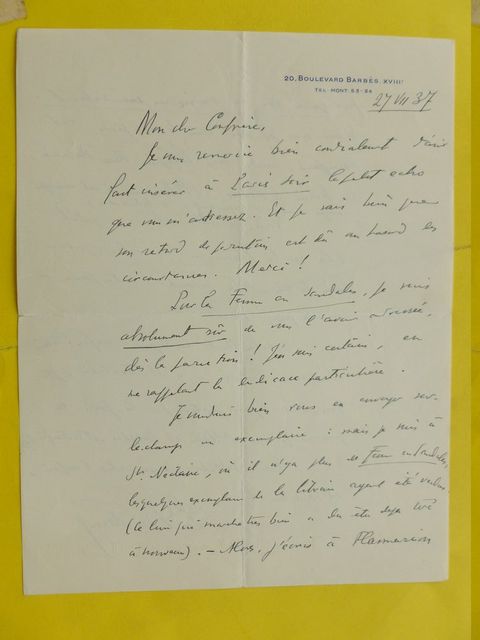 20, BOULEVARD BARBÈS, XVIIIᵉ
TEL. MONT. 53-84
27 VII 37
Mon cher Confrère,
Je vous remercie bien cordialement d'avoir
fait insérer à Paris soir le petit echo
que vous m'adressez. Et je sais bien que
son retard de parution est dû au hasard des
circonstances. Merci !
Sur la Femme en sandales, je suis
absolument sûr de vous l'avoir adressée,
dès la parution ! J'en suis certain, en
me rappelant la dédicace particulière.
Je voudrais bien vous en envoyer sur-
le-champ un exemplaire : mais je suis à
St. Nectaire, où il n'y a plus de Femme en sandales,
les quelques exemplaires de la librairie ayant été vendus
(le livre qui marche très bien a dû être déjà tiré
à nouveau). — Alors, j'écris à Flammarion